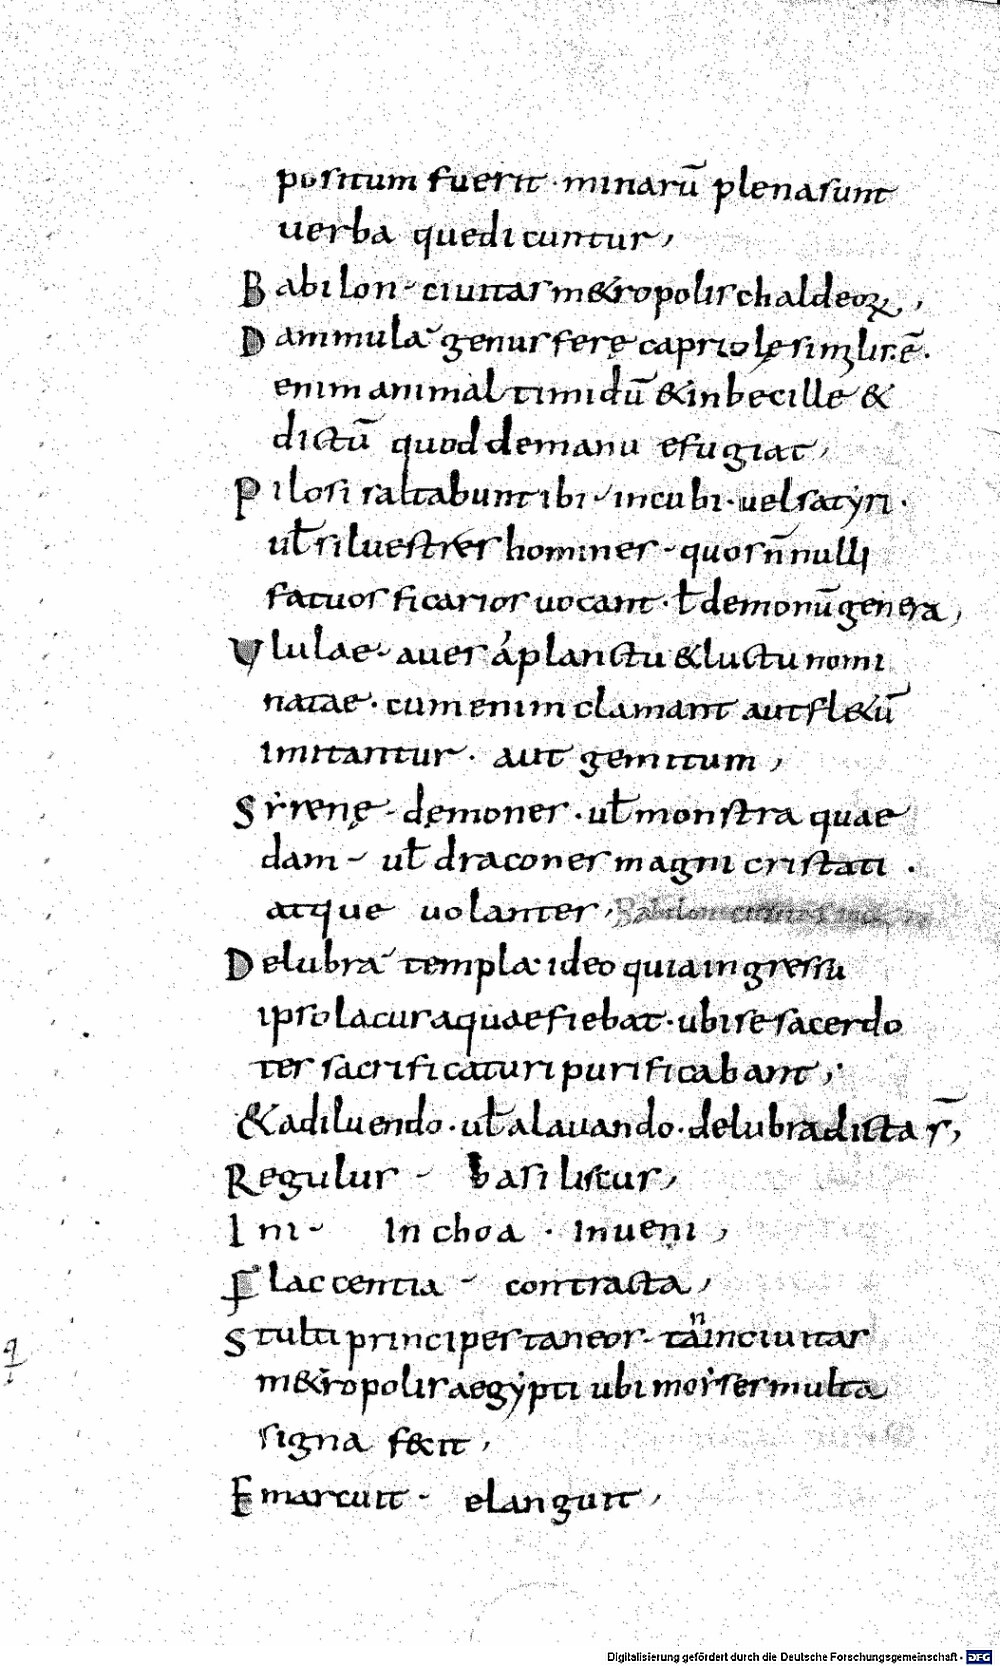 positum fuerit · minarū plena sunt
uerba quedicuntur,
Babilon- ciuitas m&ropolis chaldeoꝝ,
Dammula genus ferę capriolę similis. ē.
enim animal timidū & inbecille &
dictū quod demanu efugiat,
Pilosi saltabunt ibi - incubi · uel satẏri ·
ul̄ siluestres homines - quos n̄nulli
fatuos ficarios uocant · ł demonū genera,
Vlulae - aues á planctu & luctu nomi
natae · cum enim clamant aut fl&ū
imitantur · aut gemitum,
Sẏrenę - dęmones · ul̄ monstra quae
dam - ul̄ dracones magni cristati ·
atque uolantes,
Delubra templa · ideo quia ingressu
ipso lacus aquae fiebat · ubi se sacerdo
tes sacrificaturi purificabant,
& a diluendo · ul̄ a lauando · delubra dicta s̄,
Regulus - basiliscus,
Ini - Inchoa · Inueni,
Flaccentia - contracta,
Stulti principes taneos - tanin ciuitas
m&ropolis aegẏpti ubi moẏses multa
signa fecit,
Emarcuit - elanguit,
Digitalisierung gefördert durch die Deutsche Forschungsgemeinschaft - DFG